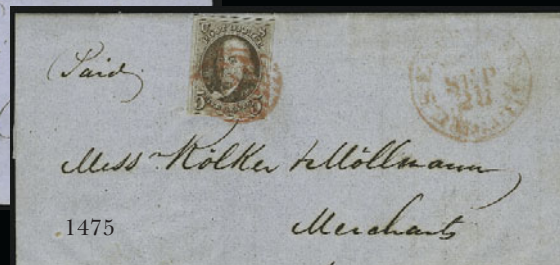 Paid
5 5
SEP
20
Mess Kölker & Möllmann
Merchants
1475